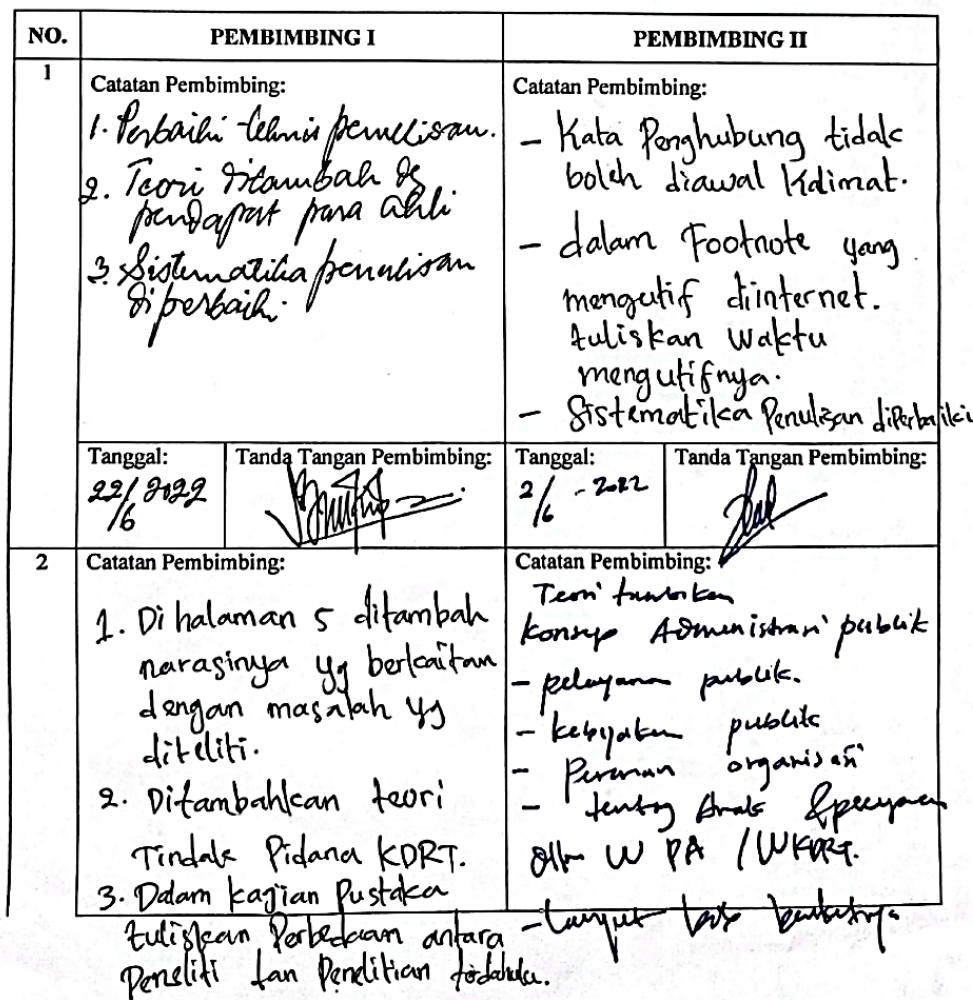 NO.
PEMBIMBING I
PEMBIMBING II
1
Catatan Pembimbing:
1. Perbaiki tehnis penulisan.
2. Teori ditambah dg
pendapat para ahli
3. Sistematika penulisan
diperbaiki.
Catatan Pembimbing:
- Kata Penghubung tidak
boleh diawal Kalimat.
- dalam Footnote yang
mengutif diinternet.
tuliskan waktu
mengutifnya.
- Sistematika Penulisan diperbaiki
Tanggal:
22/6 2022
Tanda Tangan Pembimbing:
Tanggal:
2/6 - 2022
Tanda Tangan Pembimbing:
2
Catatan Pembimbing:
1. Di halaman 5 ditambah
narasinya yg berkaitan
dengan masalah yg
diteliti.
2. Ditambahkan teori
Tindak Pidana KDRT.
3. Dalam kajian Pustaka
tuliskan Perbedaan antara
Peneliti dan Penelitian terdahulu.
Catatan Pembimbing:
Teori
Konsep Administrasi publik
- pelayanan publik.
- kebijakan publik
- Peranan organisasi
- tentang Anak
PA /
- Lanjut bab berikutnya